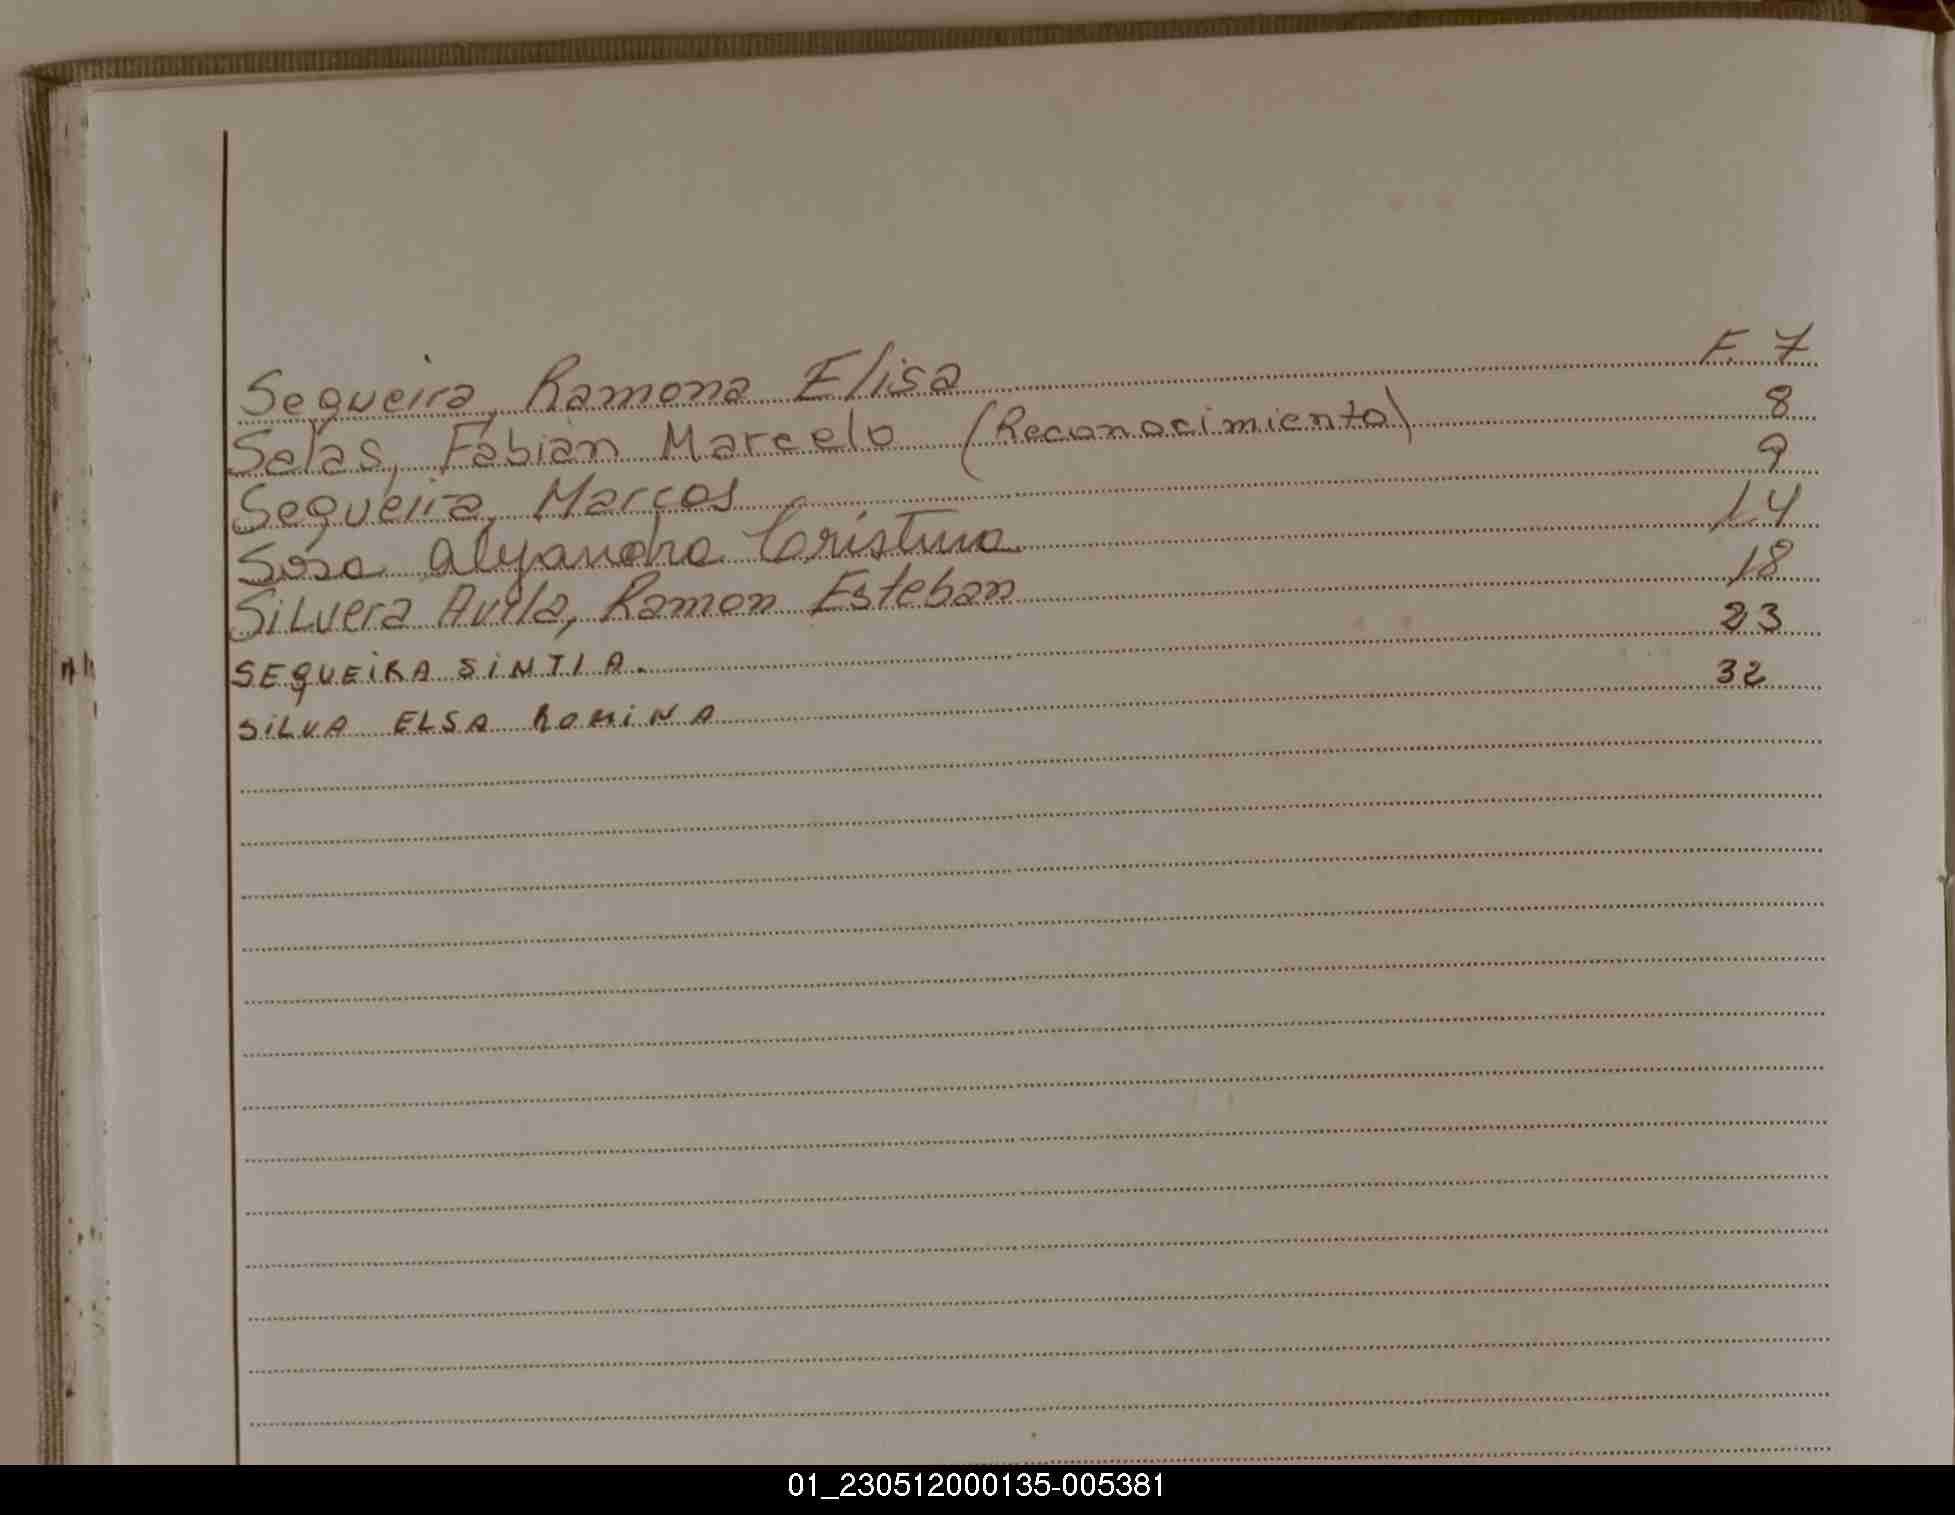 Sequeira, Ramona Elisa F. 7
Salas, Fabián Marcelo (Reconocimiento) 8
Sequeira, Marcos 9
Sosa Alejandra Cristina 14
Silvera Avila, Ramon Esteban 18
SEQUEIRA SINTIA. 23
SILVA ELSA ROMINA 32
01_230512000135-005381